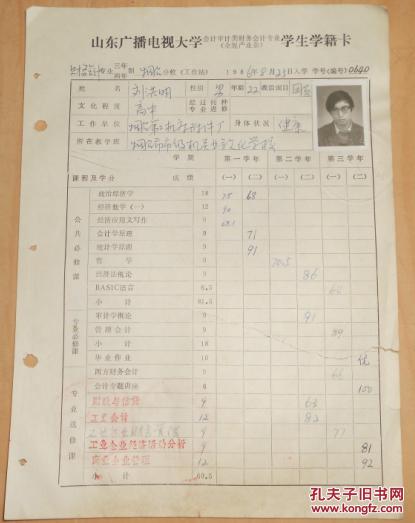 山东广播电视大学 会计审计类财务会计专业(全脱产业余) 学生学籍卡
专业 三年 四年 制 烟台分校(工作站) 1986年8月23日入学 学号(编号)0640
姓名 刘洪明 性别 男 年龄 22 政治面目 团员
文化程度 高中 经过何种专业进修
工作单位 身体状况 健康
所在教学班 烟台市市级机关业文化学校
学期 第一学年 第二学年 第三学年
课程及学分 成绩 (一) (二) (一) (二) (一) (二)
公共必修课
政治经济学 18 75 68
经济数学(一) 12 90
经济应用文写作 9 68.1
会计学原理 9 71
统计学原理 9 91
哲学 9 70.5
经济法概论 9 86
BASIC语言 6.5
小计 81.5
专业必修课
审计学概论 9 91
管理会计 9 89
小计 18
毕业作业 10 优
专业选修课
西方财务会计 9 66
会计专题讲座 6 100
财政与信贷 9 63
工业会计 12 82
9 77
工业企业经济活动分析 9 81
商业企业管理 12 92
小计 60.5
孔夫子旧书网